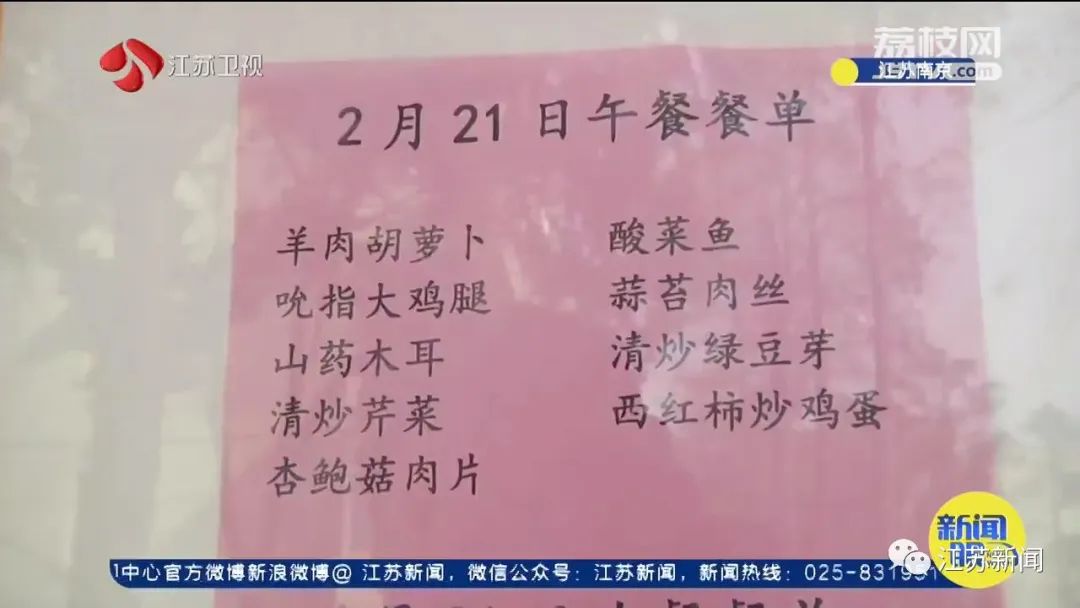 江苏卫视
荔枝网
.com
江苏南京
2月21日午餐餐单
羊肉胡萝卜
酸菜鱼
吮指大鸡腿
蒜苔肉丝
山药木耳
清炒绿豆芽
清炒芹菜
西红柿炒鸡蛋
杏鲍菇肉片
新闻
江苏新闻
中心官方微博新浪微博@ 江苏新闻，微信公众号：江苏新闻，新闻热线：025-83195